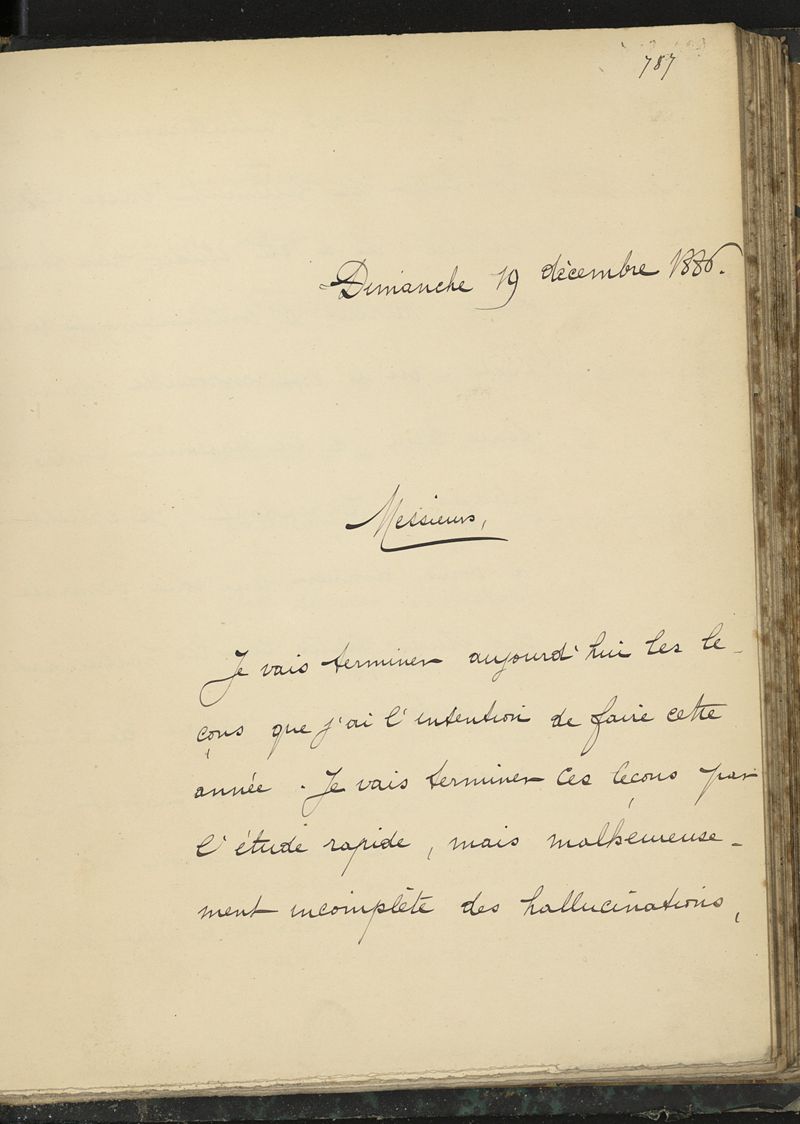 787
Dimanche 19 décembre 1886.
Messieurs,
Je vais terminer aujourd'hui les le-
çons que j'ai l'intention de faire cette
année. Je vais terminer ces leçons par
l'étude rapide, mais malheureuse-
ment incomplète des hallucinations,